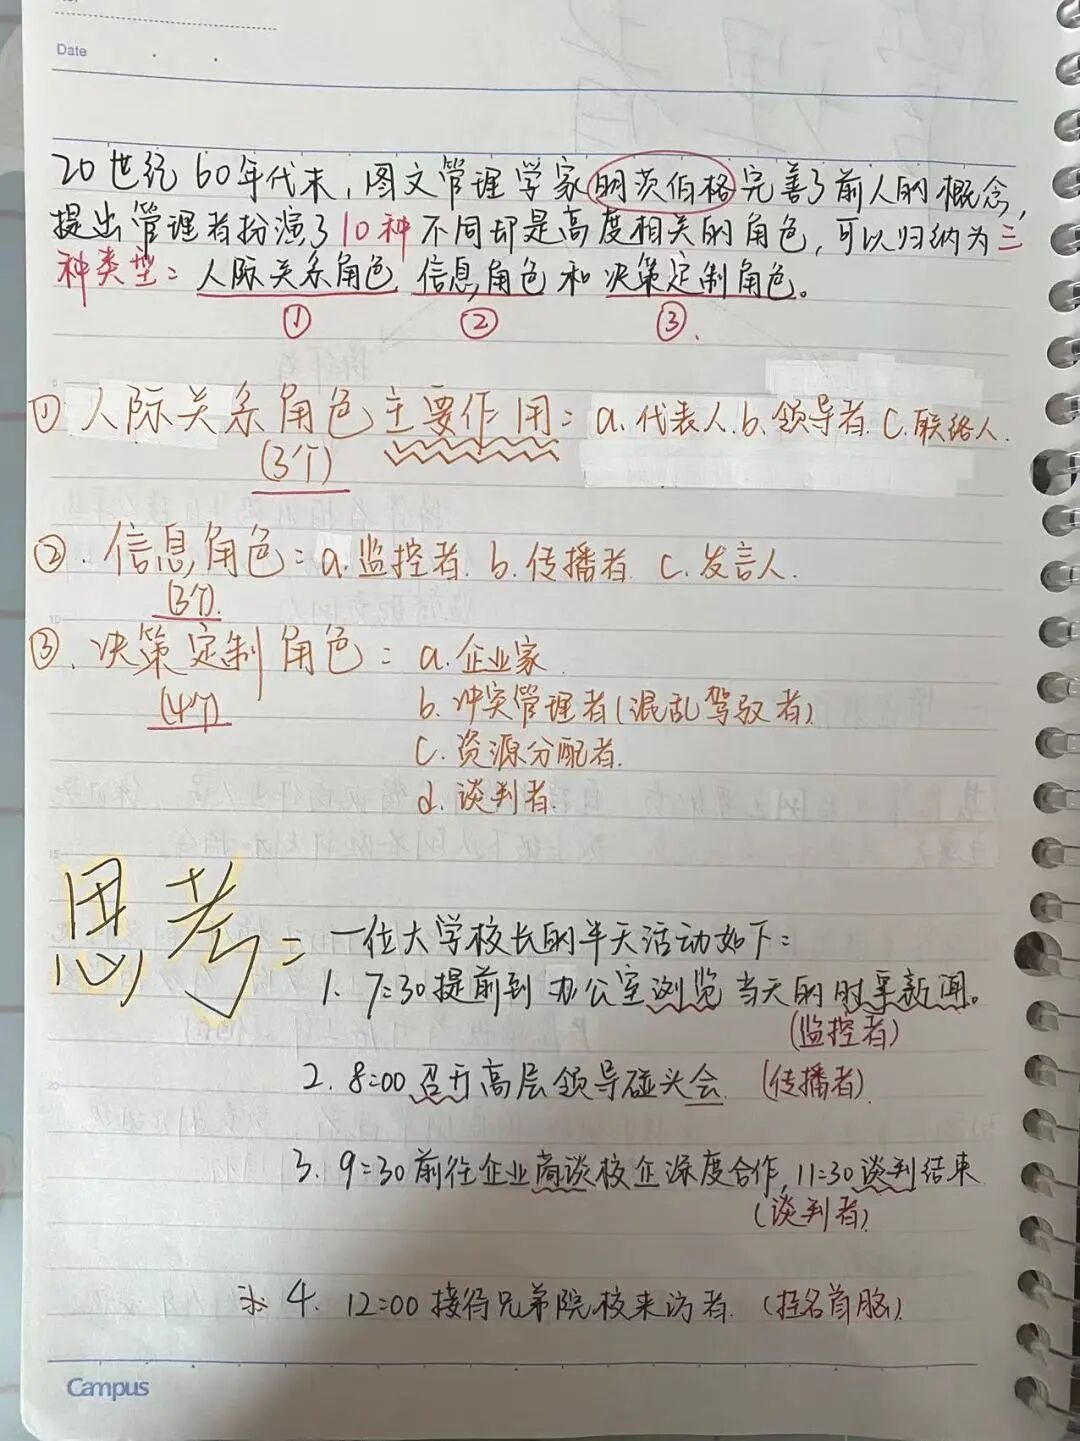 Date
20世纪60年代末,图文管理学家明茨伯格完善了前人的概念,
提出管理者扮演了10种不同却是高度相关的角色,可以归纳为三
种类型:人际关系角色、信息角色和决策定制角色。
① ② ③.
① 人际关系角色主要作用:a.代表人.b.领导者.c.联络人.
(3个)
②.信息角色:a.监控者.b.传播者.c.发言人.
(3个).
③.决策定制角色:a.企业家.
(4个)
b.冲突管理者(混乱驾驭者)
c.资源分配者.
d.谈判者.
思考:一位大学校长的半天活动如下:
1、7:30提前到办公室浏览当天的时事新闻。
(监控者)
2.8:00召开高层领导碰头会.(传播者).
3.9:30前往企业商谈校企深度合作,11:30谈判结束
(谈判者).
4.12:00接待兄弟院校来访者.(挂名首脑).
Campus